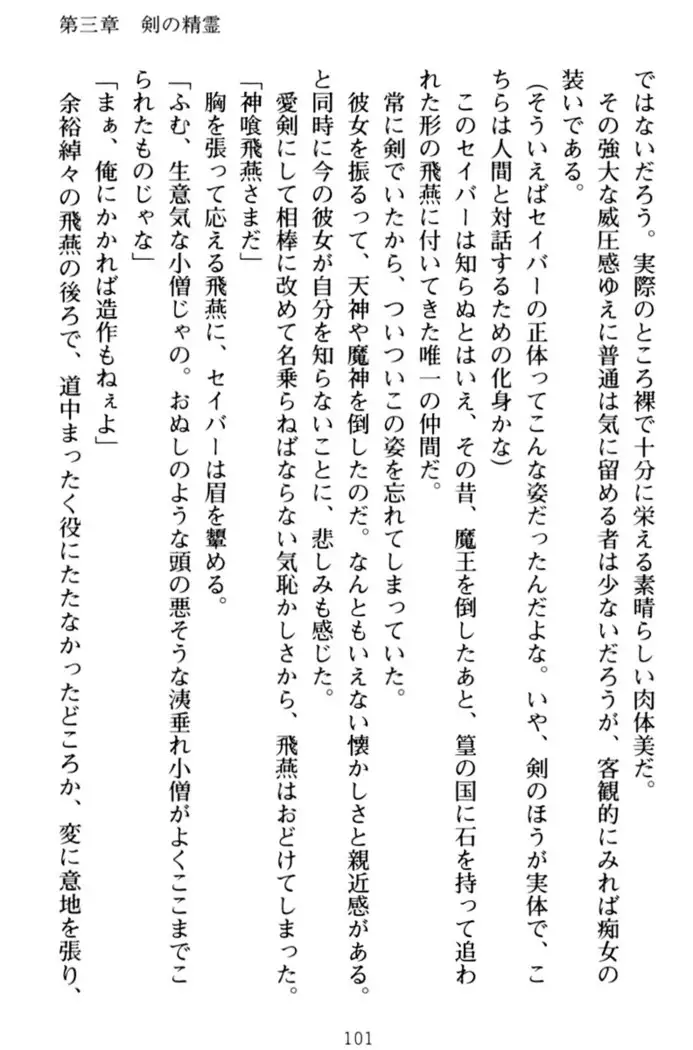 第三章　剣の精霊
ではないだろう。実際のところ裸で十分に栄える素晴らしい肉体美だ。
　その強大な威圧感ゆえに普通は気に留める者は少ないだろうが、客観的にみれば痴女の
装いである。
（そういえばセイバーの正体ってこんな姿だったんだよな。いや、剣のほうが実体で、こ
ちらは人間と対話するための化身かな）
　このセイバーは知らぬとはいえ、その昔、魔王を倒したあと、篁の国に石を持って追わ
れた形の飛燕に付いてきた唯一の仲間だ。
　常に剣でいたから、ついついこの姿を忘れてしまっていた。
　彼女を振るって、天神や魔神を倒したのだ。なんともいえない懐かしさと親近感がある。
と同時に今の彼女が自分を知らないことに、悲しみも感じた。
　愛剣にして相棒に改めて名乗らねばならない気恥かしさから、飛燕はおどけてしまった。
「神喰飛燕さまだ」
　胸を張って応える飛燕に、セイバーは眉を顰める。
「ふむ、生意気な小僧じゃの。おぬしのような頭の悪そうな洟垂れ小僧がよくここまでこ
られたものじゃな」
「まぁ、俺にかかれば造作もねぇよ」
　余裕綽々の飛燕の後ろで、道中まったく役にたたなかったどころか、変に意地を張り、
101